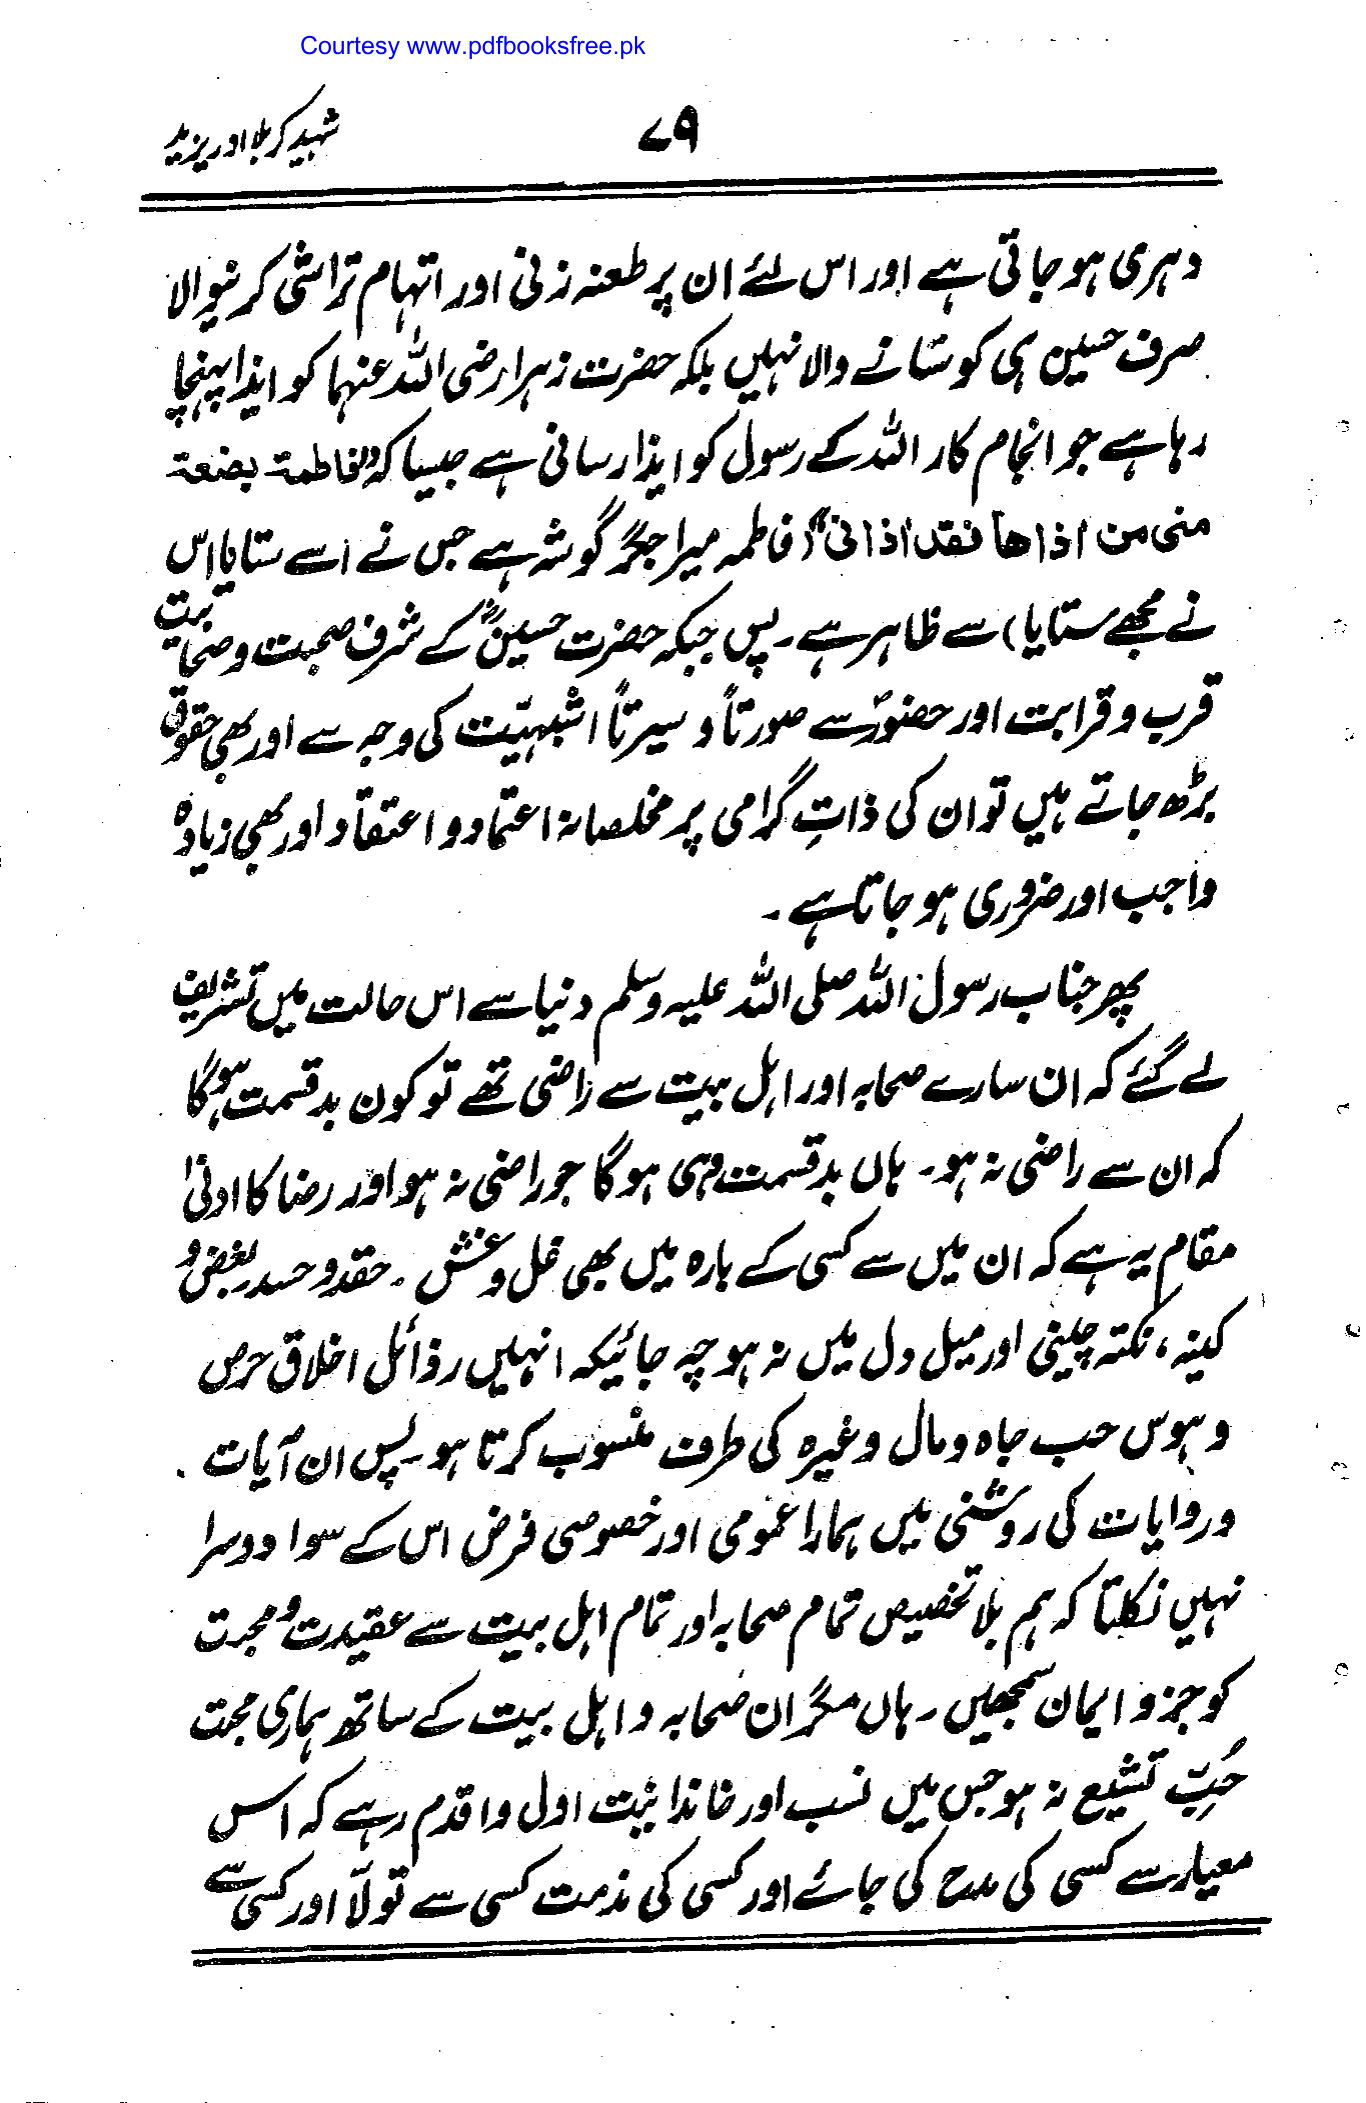 Courtesy www.pdfbooksfree.pk
شہید کربلا اور یزید
۷۹
دہری ہو جاتی ہے اور اس لئے ان پر طعنہ زنی اور اتہام تراشی کرنیوالا
صرف حسین ہی کو ستانے والا نہیں بلکہ حضرت زہرا رضی اللہ عنہا کو ایذا پہنچا
رہا ہے جو انجام کار اللہ کے رسول کو ایذا رسانی ہے جیسا کہ "فاطمۃ بضعۃ
منی من اذاھا فقد اذانی" (فاطمہ میرا جگر گوشہ ہے جس نے اسے ستایا اس
نے مجھے ستایا) سے ظاہر ہے۔ پس جبکہ حضرت حسینؓ کے شرف صحبت و صحابیت
قرب و قرابت اور حضورؐ سے صورتاً و سیرتاً اشبہیّت کی وجہ سے اور بھی حقوق
بڑھ جاتے ہیں تو ان کی ذاتِ گرامی پر مخلصانہ اعتماد و اعتقاد اور بھی زیادہ
واجب اور ضروری ہو جاتا ہے۔
پھر جناب رسول اللہ صلی اللہ علیہ وسلم دنیا سے اس حالت میں تشریف
لے گئے کہ ان سارے صحابہ اور اہل بیت سے راضی تھے تو کون بدقسمت ہوگا
کہ ان سے راضی نہ ہو۔ ہاں بدقسمت وہی ہوگا جو راضی نہ ہو اور رضا کا ادنیٰ
مقام یہ ہے کہ ان میں سے کسی کے بارہ میں بھی غل و غش۔ حقد و حسد بغض و
کینہ، نکتہ چینی اور میل دل میں نہ ہو چہ جائیکہ انہیں رذائل اخلاق حرص
و ہوس حب جاہ و مال وغیرہ کی طرف منسوب کرتا ہو۔ پس ان آیات
و روایات کی روشنی میں ہمارا عمومی اور خصوصی فرض اس کے سوا دوسرا
نہیں نکلتا کہ ہم بلا تخصیص تمام صحابہ اور تمام اہل بیت سے عقیدت و محبت
کو جزو ایمان سمجھیں۔ ہاں مگر ان صحابہ و اہل بیت کے ساتھ ہماری محبت
حُبِّ تشیع نہ ہو جس میں نسب اور خاندانیت اول و اقدم رہے کہ اس
معیار سے کسی کی مدح کی جائے اور کسی کی مذمت کسی سے تولّا اور کسی سے